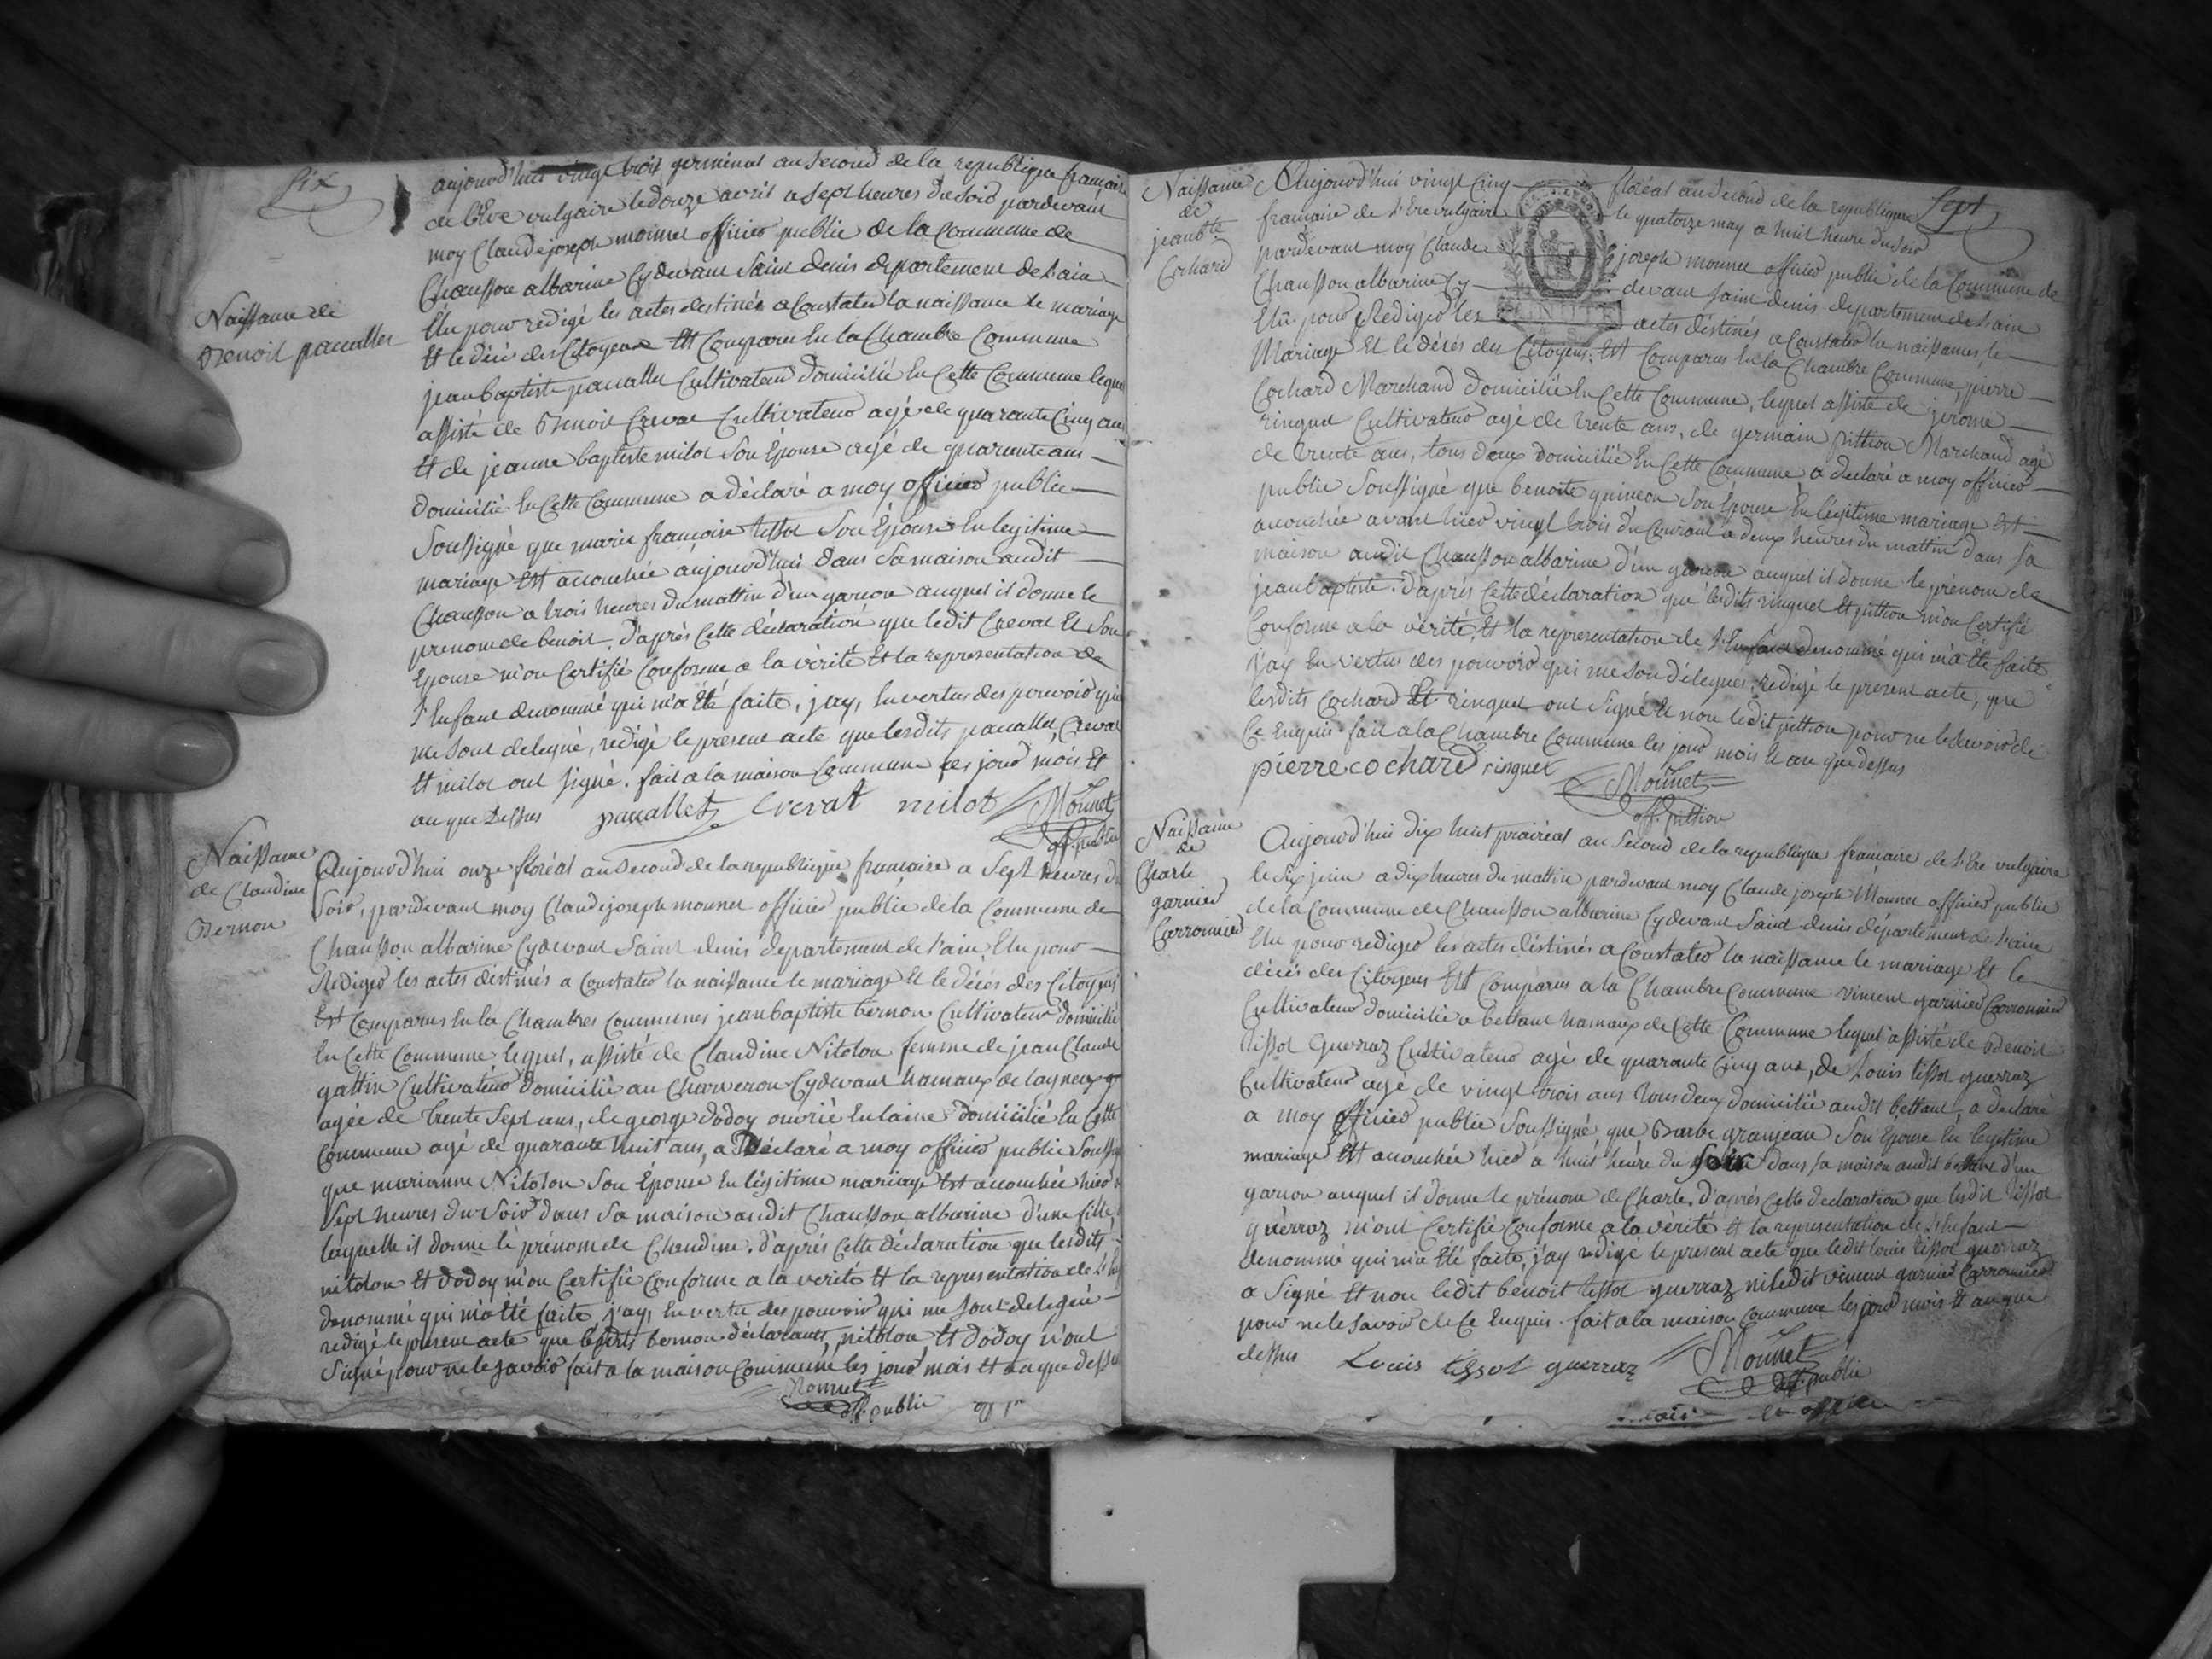 six
Naissance de
Benoit pacallet
aujourd'hui vingt trois germinal an second de la republique francaise
de l'Ere vulgaire le douze avril a sept heures du soir pardevant
moy Claude joseph monnet officier public de la Commune de
Chausson albarine Cydevant Saint denis departement de l'ain
Elu pour redigé les actes destinés a Constater la naissance le mariage
Et le décé des Citoyens Est Comparu En la Chambre Commune
jean baptiste pacallet Cultivateur domicilié En Cette Commune lequel
assisté de Benoit Crevat Cultivateur agé de quarante Cinq ans
Et de jeanne baptiste milot Son Epouse agé de quarante ans
domicilié En Cette Commune a déclaré a moy officier public
Soussigné que marie françoise tissot Son Epouse En legitime
mariage Est accouchée aujourd'hui dans Sa maison audit
Chausson a trois heures du mattin d'un garcon auquel il donne le
prenom de benoit. d'après Cette déclaration que ledit Crevat Et Son
Epouse m'on Certifié Conforme a la vérité Et la representation de
l'Enfant denommé qui m'a Eté faite, j'ay, En vertus des pouvoir qui
me sont delegué, redigé le present acte que lesdits pacallet, Crevat
Et milot ont signé. fait a la maison Commune les jour mois Et
an que Dessus pacallet Crevat milot Mounet
off. public
Naissance
de Claudine
Bernon
Aujourd'hui onze floréal an second de la republique francaise a Sept heures du
Soir, pardevant moy Claude joseph mounet officier public de la Commune de
Chausson albarine Cydevant Saint denis departement de l'ain, Elu pour
Rediger les actes déstinés a Constater la naissance le mariage Et le décès des Citoyens
Est Comparus En la Chambres Communes jean baptiste bernon Cultivateur domicilié
En Cette Commune lequel, assisté de Claudine Nitolon femme de jean Claude
gattin Cultivateur domicilié au Charveron Cydevant hamaux de lagneux
agée de trente Sept ans, de george dodoy ouvrié En laine domicilié En Cette
Commune agé de quarante huit ans, a Déclaré a moy officier public
que marianne Nitolon Son Epouse En légitime mariage Est accouchée hier
Sept heures du Soir dans Sa maison audit Chausson albarine d'une fille
laquelle il donne le prénom de Claudine. d'après Cette déclaration que lesdits
nitolon Et dodoy m'on Certifié Conforme a la verité Et la representation de
denommé qui m'a Eté faite, j'ay, En vertu des pouvoir qui me sont delegué
redigé le present acte que lesdits bernon déclarants, nitolon, Et dodoy n'ont
Signé pour ne le savoir fait a la maison Commune les jour mois Et an que dessus
Monnet
off. public
Sept
Naissance
de
jean bte
Cochard
Aujourd'hui vingt Cinq floréal an Second de la republique
francaise de l'Ere vulgaire le quatorze may a huit heure du Soir
pardevant moy Claude joseph mounet officier public de la Commune de
Chausson albarine Cy devant saint denis departement de l'ain
Elu pour Rediger les actes déstinés a Constater la naissances le
Mariage Et le décés des Citoyens. Est Comparus En la Chambre Commune, pierre
Cochard Marchand domicilié En Cette Commune, lequel assisté de jerome
ringuet Cultivateur agé de trente ans, de germain pittion Marchand agé
de trente ans, tous deux domicilié En Cette Commune a declaré a moy officier
public Soussigné que benoite quineon Son Epouse En légitime mariage Est
accouchée avant hier vingt trois du Courant a deux heures du mattin dans Sa
maison audit Chausson albarine d'un garcon auquel il donne le prénom de
jean baptiste. d'après Cette déclaration que lesdits ringuet Et pittion m'on Certifié
Conforme a la vérité, Et la representation de l'Enfant denommé qui m'a Eté faite
j'ay En vertus des pouvoir qui me son délegues, redigé le present acte, que
lesdits Cochard Et ringuet ont Signé Et non ledit pittion pour ne le savoir de
Ce Enquis. fait a la Chambre Commune les jour mois Et an que dessus
pierre cochard ringuet Mounet
off.
Naissance
de
Charle
garnier
Carronnier
Aujourd'hui dix huit prairéal an Second de la republique francaise de l'Ere vulgaire
le six juin a dix heures du mattin pardevant moy Claude joseph Mounet officier public
de la Commune de Chausson albarine Cydevant Saint denis département de l'ain
Elu pour rediger les actes déstinés a Constater la naissance le mariage Et le
décés des Citoyens Est Comparus a la Chambre Commune vincent garnier Carronnier
Cultivateur domicilié a bettant hamaux de Cette Commune lequel assisté de Benoit
tissot Guerraz Cultivateur agé de quarante Cinq ans, de Louis tissot guerraz
Cultivateur agé de vingt trois ans tous deux domicilié audit bettant, a declaré
a moy officier public Soussigné, que Barbe granjean Son Epouse En legitime
mariage Est accouchée hier a huit heure du soir dans sa maison audit bettant d'un
garcon auquel il donne le prénom de Charle. d'après Cette declaration que lesdit tissot
guérraz m'ont Certifié Conforme a la vérité Et la representation de l'Enfant
denommé qui m'a Eté faite, j'ay redigé le present acte que ledit louis tissot guerraz
a Signé Et non ledit benoit tissot guerraz ni ledit vincent garnier Carronnier
pour ne le savoir de Ce Enquis. fait a la maison Commune les jour mois Et an que
dessus Louis tissot guerraz Mounet
off. public